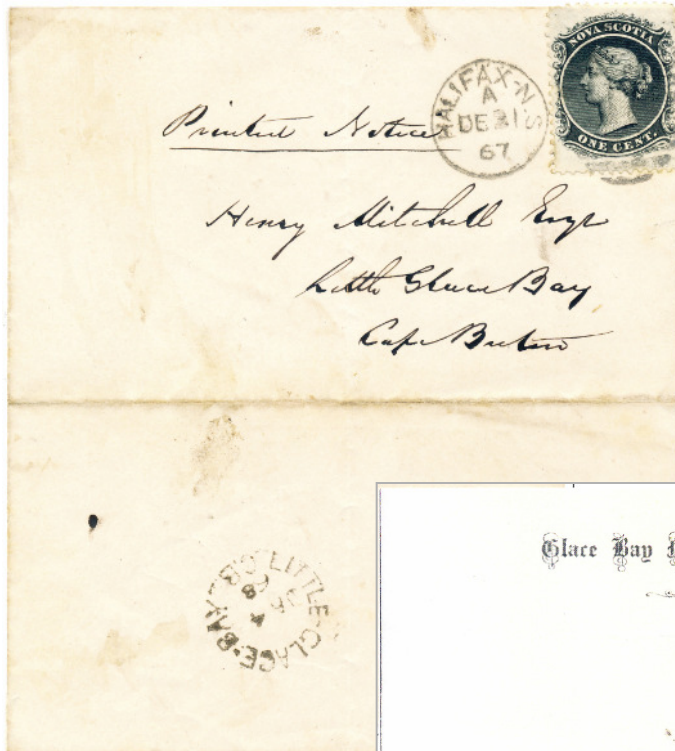 NOVA SCOTIA
ONE CENT.
HALIFAX·N.S
A
DE 31
67
Printed Notice
Henry Mitchell Esqr
Little Glace Bay
Cape Breton
LITTLE-GLACE-BAY-C.B
JA
4
68
Glace Bay